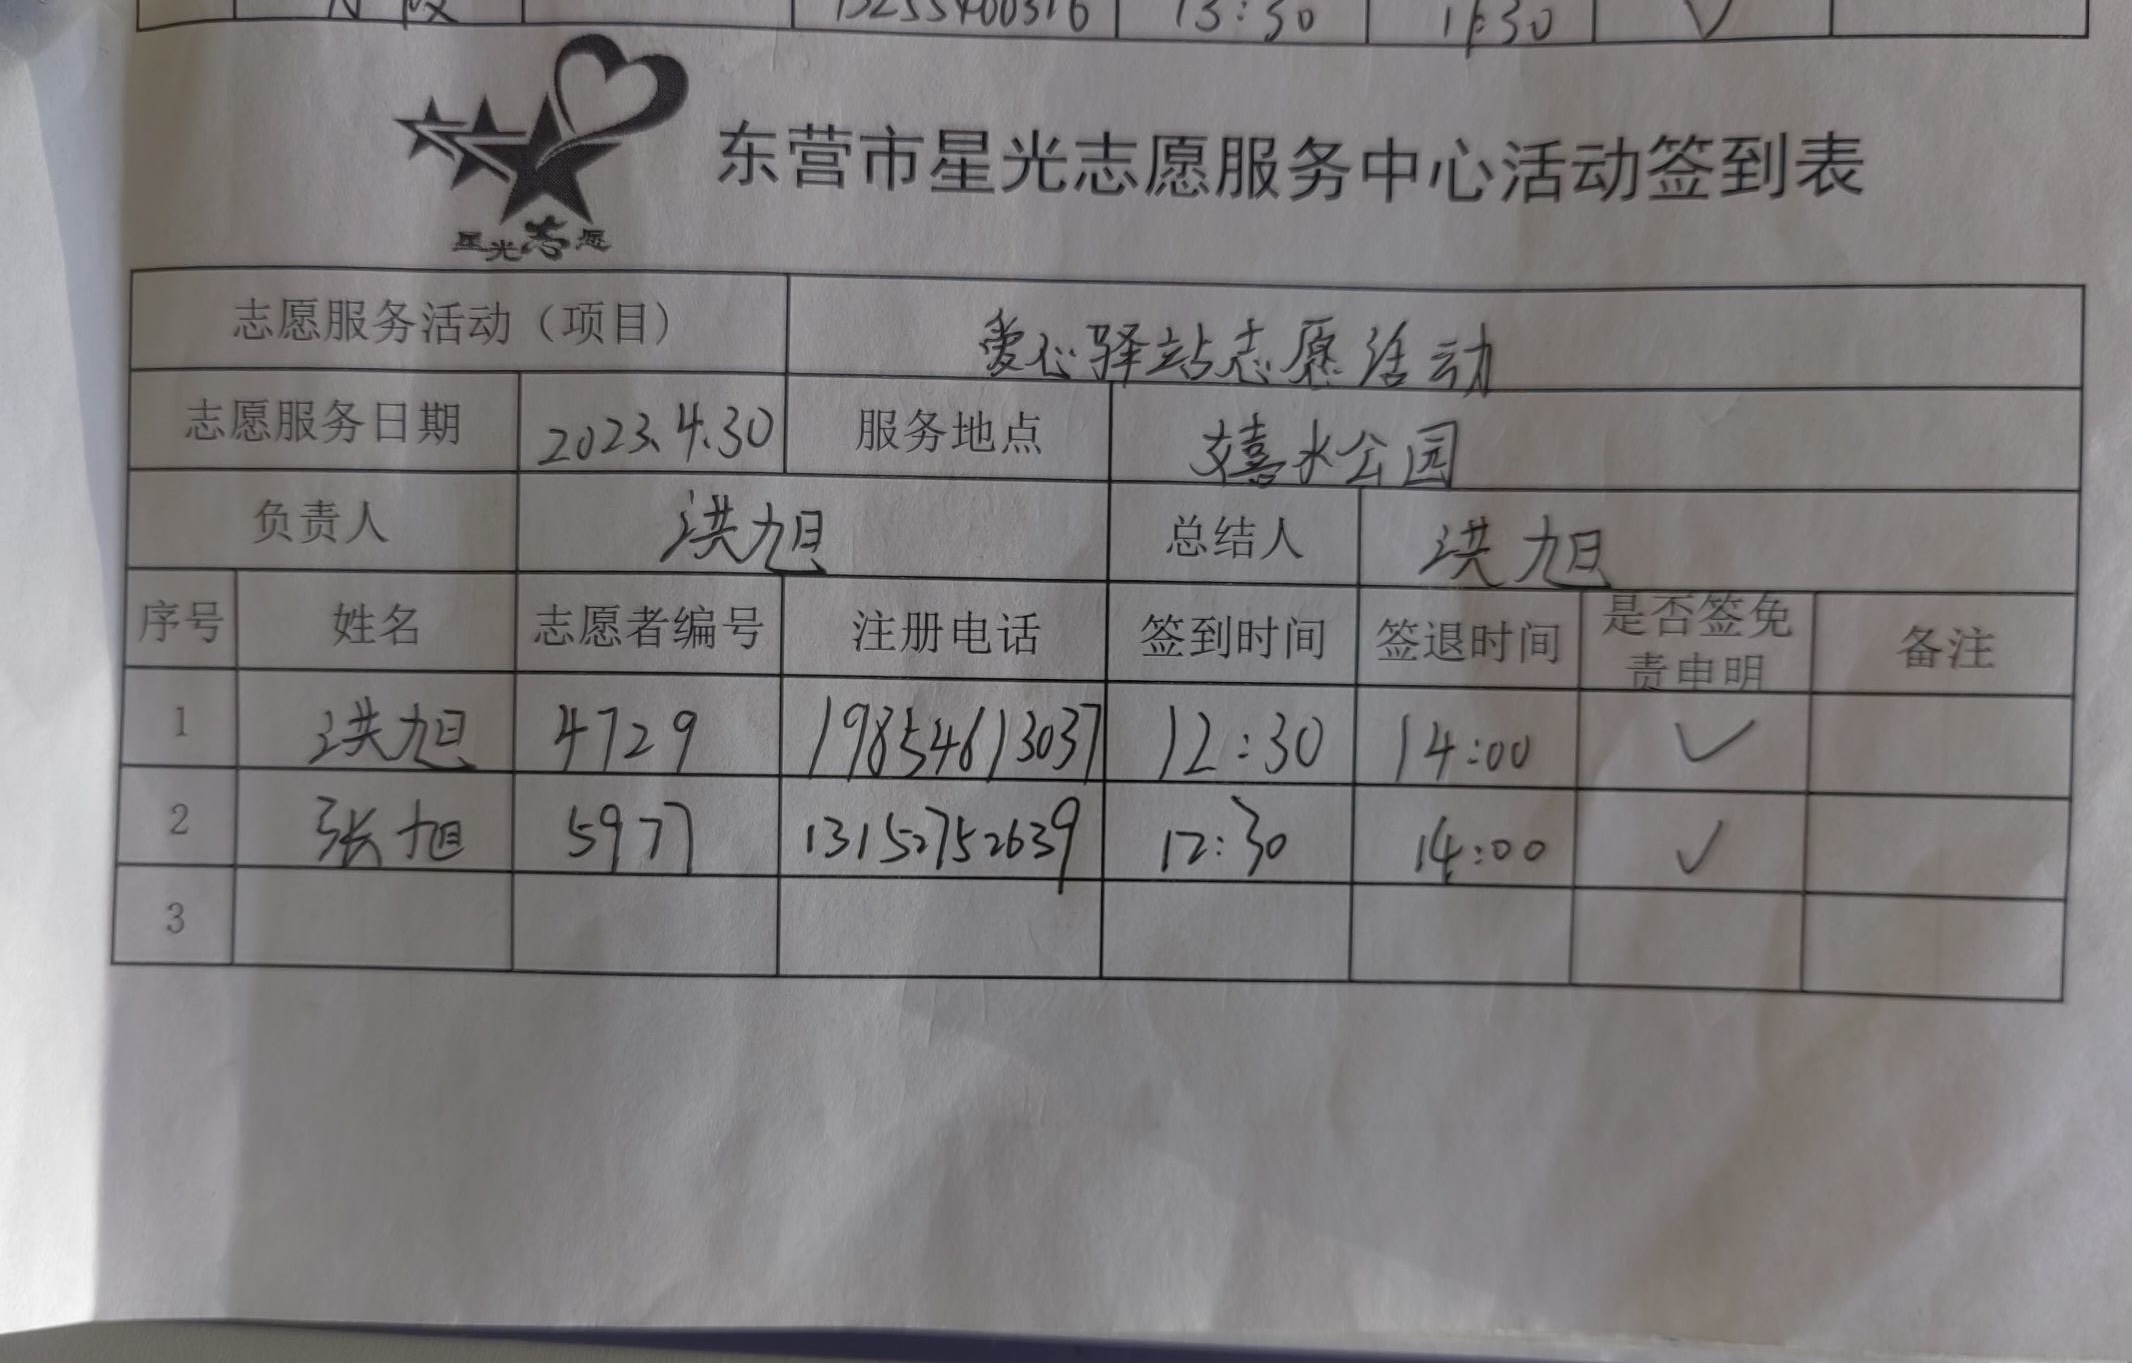 13:30
东营市星光志愿服务中心活动签到表
星光志愿
志愿服务活动（项目） 爱心驿站志愿活动
志愿服务日期 2023.4.30 服务地点 嬉水公园
负责人 洪旭 总结人 洪旭
序号 姓名 志愿者编号 注册电话 签到时间 签退时间 是否签免责申明 备注
1 洪旭 4729 19854613037 12:30 14:00 ✓
2 张旭 5977 13152752639 12:30 14:00 ✓
3